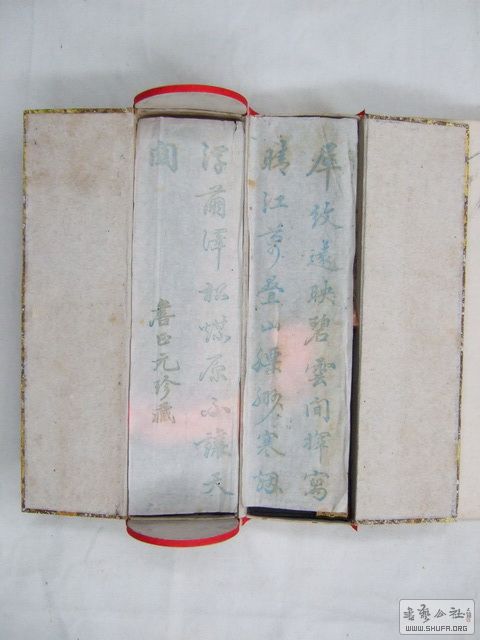 犀紋遙映碧雲間揮寫
晴江萬疊山縹緲寒烟
浮爾澤松煤原不讓天
關
詹正元珍藏
書藝公社
WWW.SHUFA.ORG